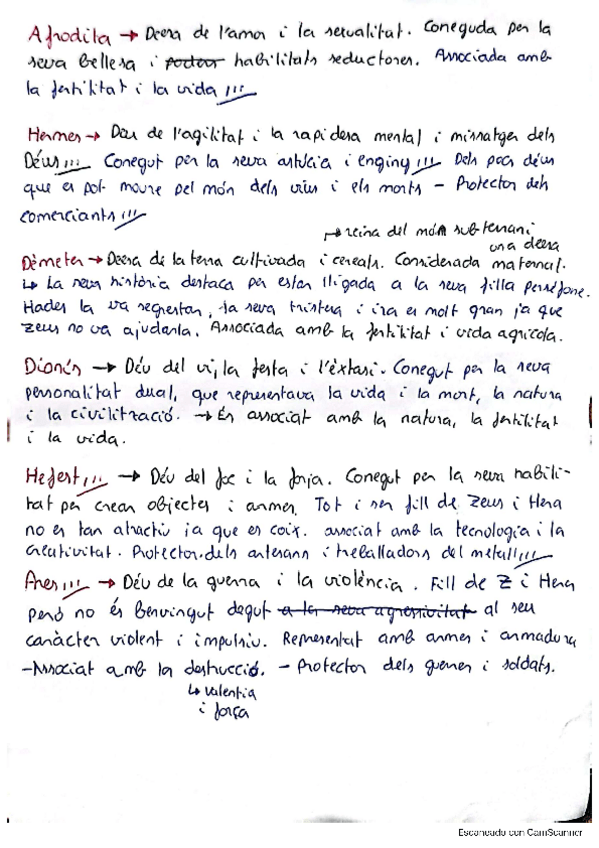 Afrodita → Deesa de l'amor i la sexualitat. Coneguda per la
seva bellesa i poder habilitats seductores. Associada amb
la fertilitat i la vida !!!
Hermes → Deu de l'agilitat i la rapidesa mental i missatger dels
Déus !!! Conegut per la seva astúcia i enginy !!! Dels pocs déus
que es pot moure pel món dels vius i els morts - Protector dels
comerciants !!!
↱ reina del món subterrani
Dèmeter → Deesa de la terra cultivada i cereals. Considerada una deesa maternal.
↳ La seva història destaca per estar lligada a la seva filla perséfone.
Hades la va segrestar, la seva tristesa i ira es molt gran ja que
Zeus no va ajudarla. Associada amb la fertilitat i vida agrícola.
Dionís → Déu del vi, la festa i l'èxtasi. Conegut per la seva
personalitat dual, que representava la vida i la mort, la natura
i la civilització. → És associat amb la natura, la fertilitat
i la vida.
Hefest !!! → Déu del foc i la forja. Conegut per la seva habili-
tat per crear objectes i armes. Tot i ser fill de Zeus i Hera
no es tan atractiu ja que es coix. associat amb la tecnologia i la
creativitat. Protector dels artesans i treballadors del metall !!!
Ares !!! → Déu de la guerra i la violència. Fill de Z i Hera
però no és benvingut degut a la seva agressivitat al seu
caràcter violent i impulsiu. Representat amb armes i armadura
-Associat amb la destrucció. - Protector dels guerrers i soldats.
↳ valentia
i força
Escaneado con CamScanner